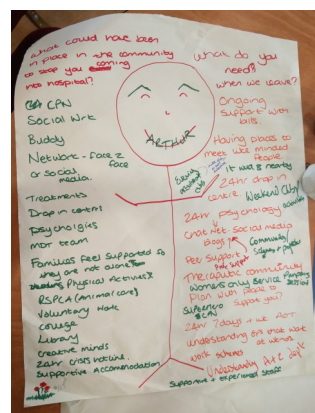 what could have been
in place in the community
to stop you coming
into hospital?
CPN
Social Work
Buddy
Network - Face 2
face
or social
media.
Treatments
Drop in centres
Psychologies
MDT team
Families Feel supported so
they are not alone
Physical Activities
RSPCA (Animal care)
Voluntary Work
College
Library
Creative minds
24hr crisis hotline.
Supportive Accommodation
ARTHUR
what do you
need?
when we leave?
Ongoing
Support with
bills.
Having places to
meet like minded
People.
it was nearby
24hr drop in
centre
Weekend Clubs
24hr psychology
Chat Net social media
blogs
Community
Pet support
Therapeutic community
Womens only Service
Plan with people to
support you?
CPN
24hr 7 days a week
understanding
work
Understanding
Supportive + experienced staff